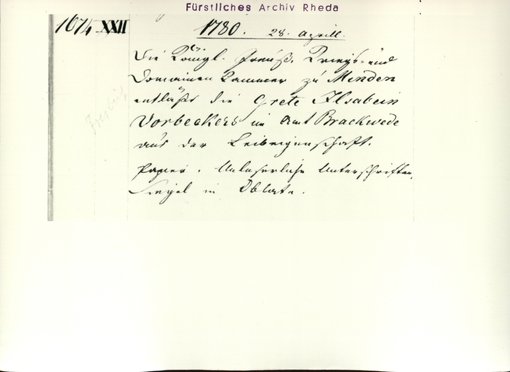 Fürstliches Archiv Rheda
1674 XXII
1780. 28. April.
Die Königl. Preuß. Kriegs- und
Domainen Kammer zu Minden
entläßt die Grete Ilsabein
Vorbeckers im Amt Brackwede
aus der Leibeigenschaft.
Papier. Unleserliche Unterschriften.
Siegel in Oblate.